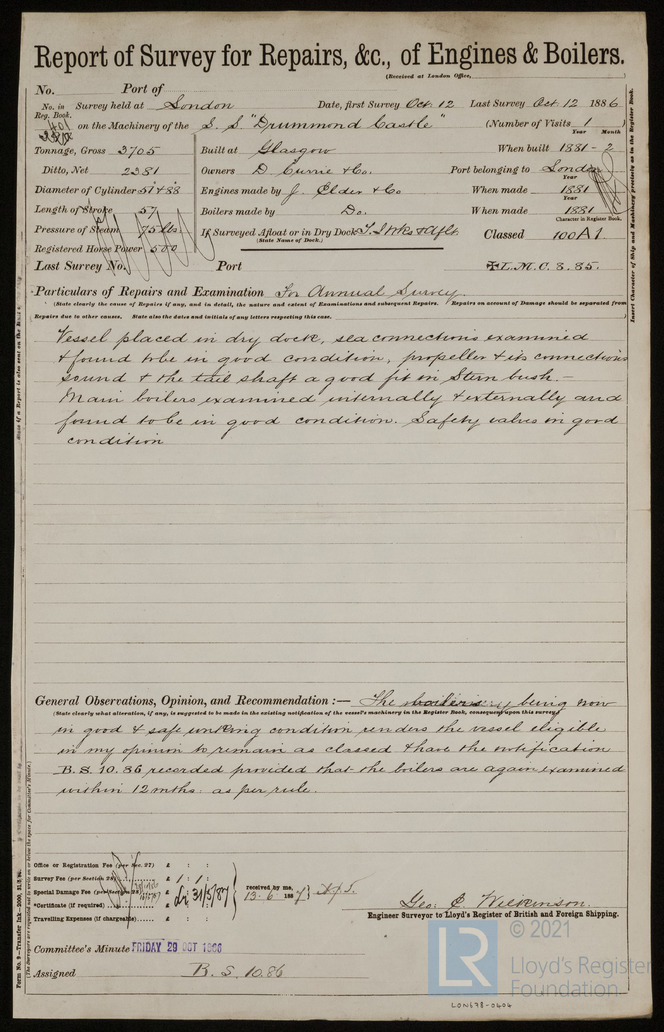 Report of Survey for Repairs, &c., of Engines & Boilers.
(Received at London Office,
No. Port of
No. in Reg. Book. Survey held at London Date, first Survey Oct. 12 Last Survey Oct. 12 1886
on the Machinery of the S. S "Drummond Castle" (Number of Visits 1
Year Month
Tonnage, Gross 3705 Built at Glasgow When built 1881 - 2
Ditto, Net 2381 Owners D. Currie & Co. Port belonging to London
Year
Diameter of Cylinder 51 & 88 Engines made by J. Elder & Co When made 1881
Year
Length of Stroke 57 Boilers made by Do. When made 1881
Character in Register Book.
Pressure of Steam 75 lbs If Surveyed Afloat or in Dry Dock Classed 100A1
(State Name of Dock.)
Registered Horse Power 500
Last Survey No. Port L.M.C. 8.85.
Particulars of Repairs and Examination For Annual Survey.
(State clearly the cause of Repairs if any, and in detail, the nature and extent of Examinations and subsequent Repairs. Repairs on account of Damage should be separated from
Repairs due to other causes. State also the dates and initials of any letters respecting this case.
Vessel placed in dry dock, sea connections examined
& found to be in good condition, propeller & its connections
sound & the tail shaft a good fit in Stern bush.-
Main boilers examined internally & externally and
found to be in good condition. Safety valves in good
condition
General Observations, Opinion, and Recommendation :— The being now
(State clearly what alteration, if any, is suggested to be made in the existing notification of the vessel's machinery in the Register Book, consequent upon this survey)
in good & safe working condition renders the vessel eligible
in my opinion to remain as classed & have the notification
B.S. 10.86 recorded provided that the boilers are again examined
within 12 mths. as per rule.
Office or Registration Fee (per Sec. 27) £ : :
Survey Fee (per Section 28) £ 1 : 1 :
Special Damage Fee (per Section 28) £ 31/5/87 received by me, 13.6 1887
*Certificate (if required) £ : :
Travelling Expenses (if chargeable) £ : :
Geo: C. Wilkinson.
Engineer Surveyor to Lloyd's Register of British and Foreign Shipping.
Committee's Minute FRIDAY 29 OCT 1886
Assigned B. S. 10.86
Form No. 9—Transfer Ink—2000,
Insert Character of Ship and Machinery precisely as in the Register Book.
LR © 2021
Lloyd's Register
Foundation
LON678-0404